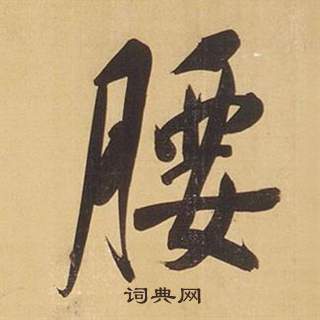 腰
词典网